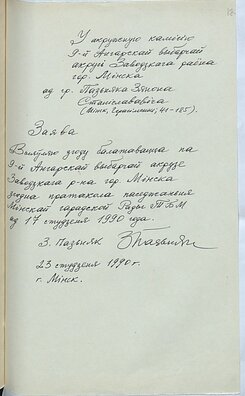 У акруговую камісію
9-й Ангарскай выбарчай
акругі Заводскага раёна
гор. Мінска
ад гр. Пазьняка Зянона
Станіслававіча
(Мінск,
Заява
Выяўляю згоду балатавацца па
9-й Ангарскай выбарчай акрузе
Заводскага р-на гор. Мінска
згодна пратакола паседжання
Мінскай гарадской Рады ТБМ
ад 17 студзеня 1990 года.
З. Пазьняк
23 студзеня 1990 г.
г. Мінск.